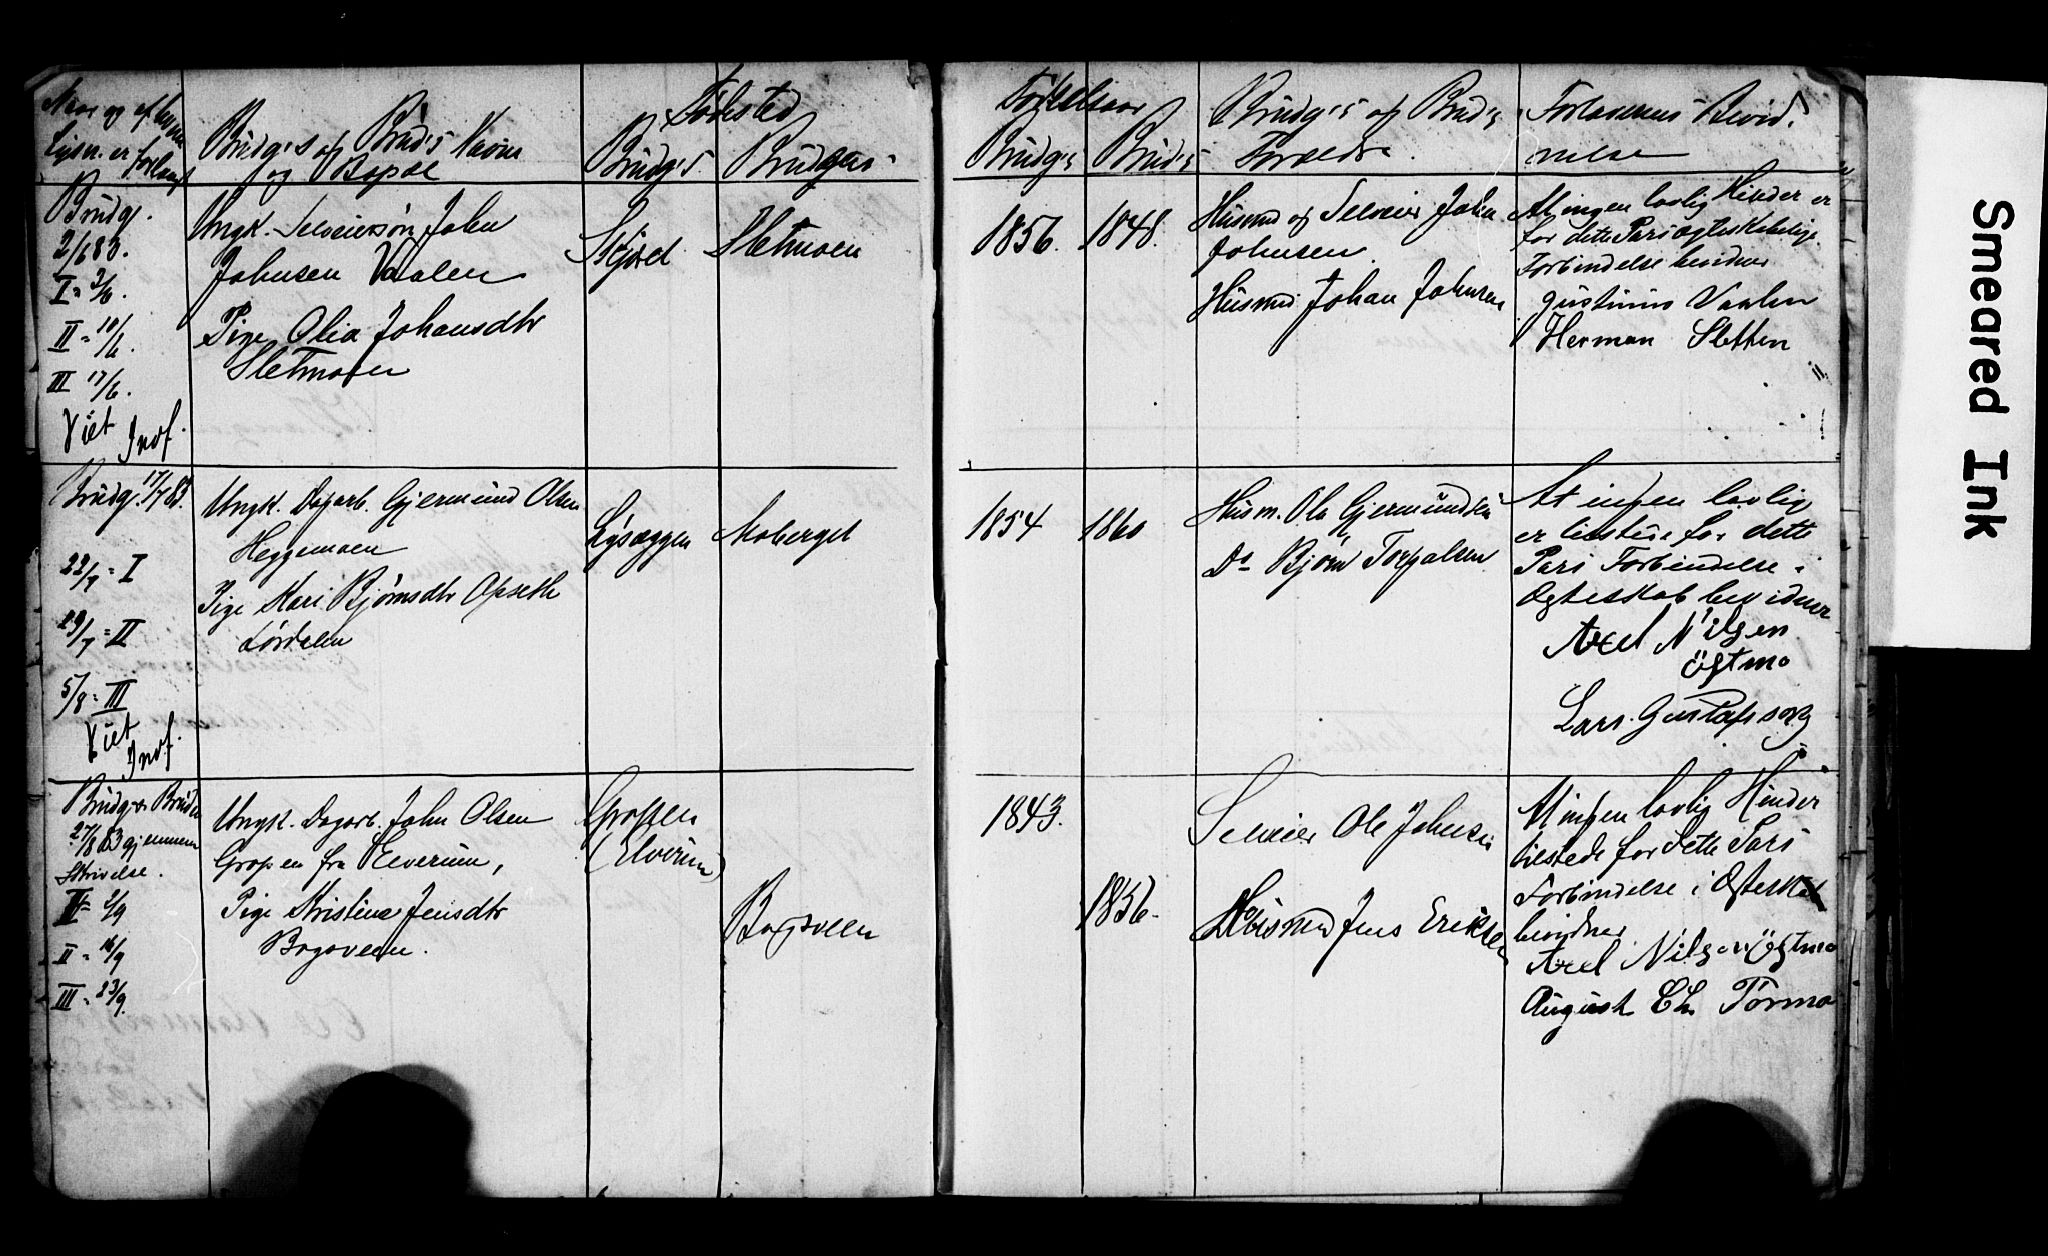 Naar og af hvem
Lysn. er forlangt
Brudg.s og Brud.s Navne
og Bopæl
Fødested
Brudg.s
Brudens
Fødselsaar
Brudg.s
Brud.s
Brudg.s og Brud.s
Forældre.
Forloverens Bevid.
nelse
Brudg.
2/6 83.
I = 3/6.
II = 10/6.
III 17/6.
Viet
Inof.
Ungk. Selveiersøn John
Johnsen Vaalen
Pige Olia Johansdtr
Sletmoen
Skjøld
Sletmoen
1856.
1848.
Husmd og Selveier John
Johnsen.
Husmd. Johan Johnsen
At ingen lovlig Hinder er
for dette Pars ægteskabelige
Forbindelse bevidner
Gustinus Vaalen
Herman Sletten
Brudg. 17/7 83.
22/7 = I
29/7 = II
5/8 = III
Viet
Inof.
Ungk. Dagarb. Gjermund Olsen
Heggemoen
Pige Kari Bjørnsdtr Opseth
Lørdalen
Lysæggen
Moberget
1854
1860
Husm. Ola Gjermundsen
Do Bjørn Torgalsen
At ingen lovlig
er tilstede for dette
Pars Forbindelse i
Ægteskab bevidner
Axel Nilsen
Östmo
Lars Gustafson
Brudg. Bruden
27/8 83 gjennem
Skrivelse.
I = 9/9
II = 16/9
III = 23/9.
Ungk. Dagarb. John Olsen
Grossen fra Elverum,
Pige Kristine Jensdtr
Bagoveen.
Grossen
(Elverum)
Bagoveen
1843.
1856.
Selveier Ole Johnsen
Husmd Jens Eriksen
At ingen lovlig Hinder
tilstede for dette Pars
Forbindelse i Ægteskab
bevidner
Axel Nilsen Östmo
August Ch Tørmo
Smeared Ink